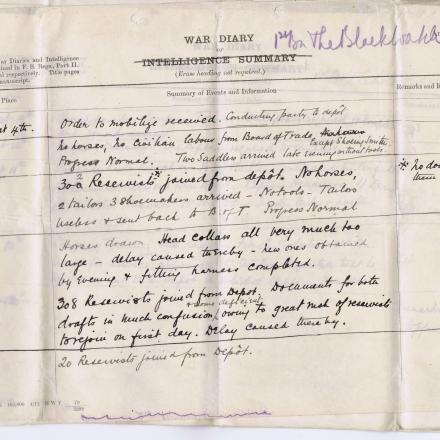 WAR DIARY
OF
INTELLIGENCE SUMMARY
(Erase heading not required.)
1st Bn The Black Watch
ar Diaries and Intelligence
ined in F. S. Regs., Part II.
respectively. Title pages
manuscript.
Place
Summary of Events and Information
Remarks and
t 4th.
Order to mobilize received. Conducting party to depôt
No horses, no civilian labour from Board of Trade,
except Shoeing Smiths
Progress Normal. Two Saddlers arrived late evening without tools
302 Reservists joined from depôt. No horses,
2 tailors 3 shoemakers arrived - No tools - Tailors
useless & sent back to B. of T Progress Normal
* no do
them
Horses drawn Head collars all very much too
large - delay caused thereby - new ones obtained
by evening & fitting harness completed.
308 Reservists joined from Depot. Documents for both
drafts in much confusion & some deficient, owing to great rush of reservists
to rejoin on first day. Delay caused thereby.
20 Reservists joined from Depôt.